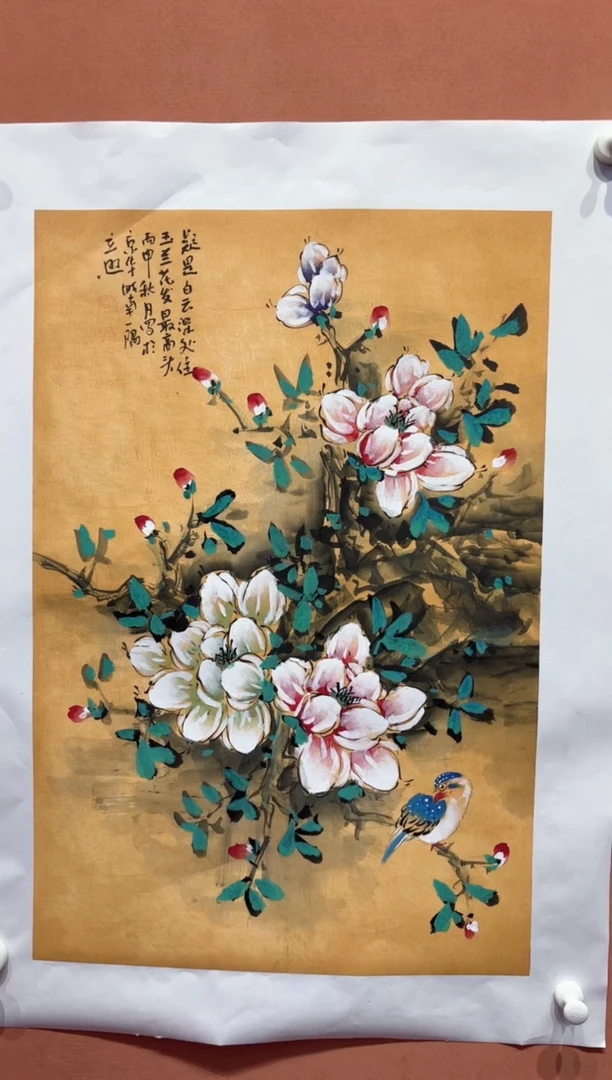 疑是白云深处住
玉兰花发最高头
丙申秋月写於
京华城南一隅
立